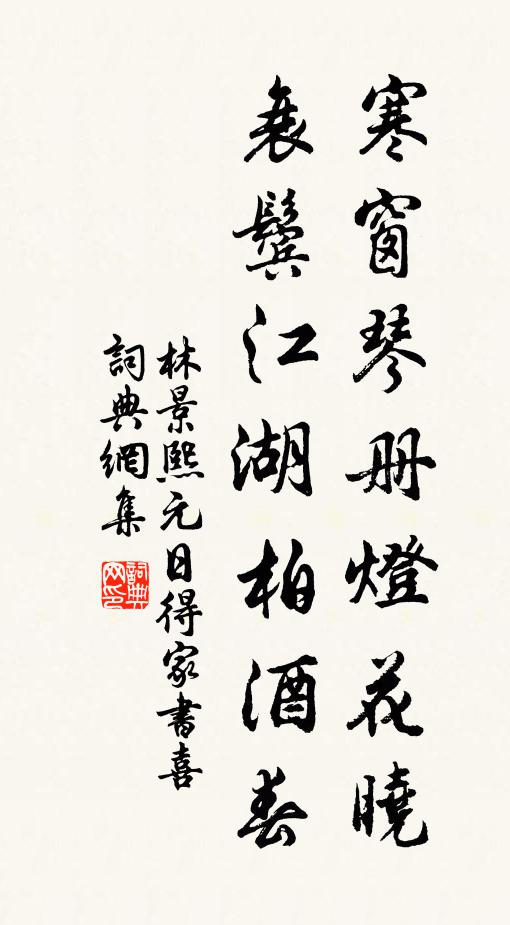 寒窗琴册燈花曉
衰鬢江湖柏酒春
林景熙元日得家書喜
詞典網集
詞典网印